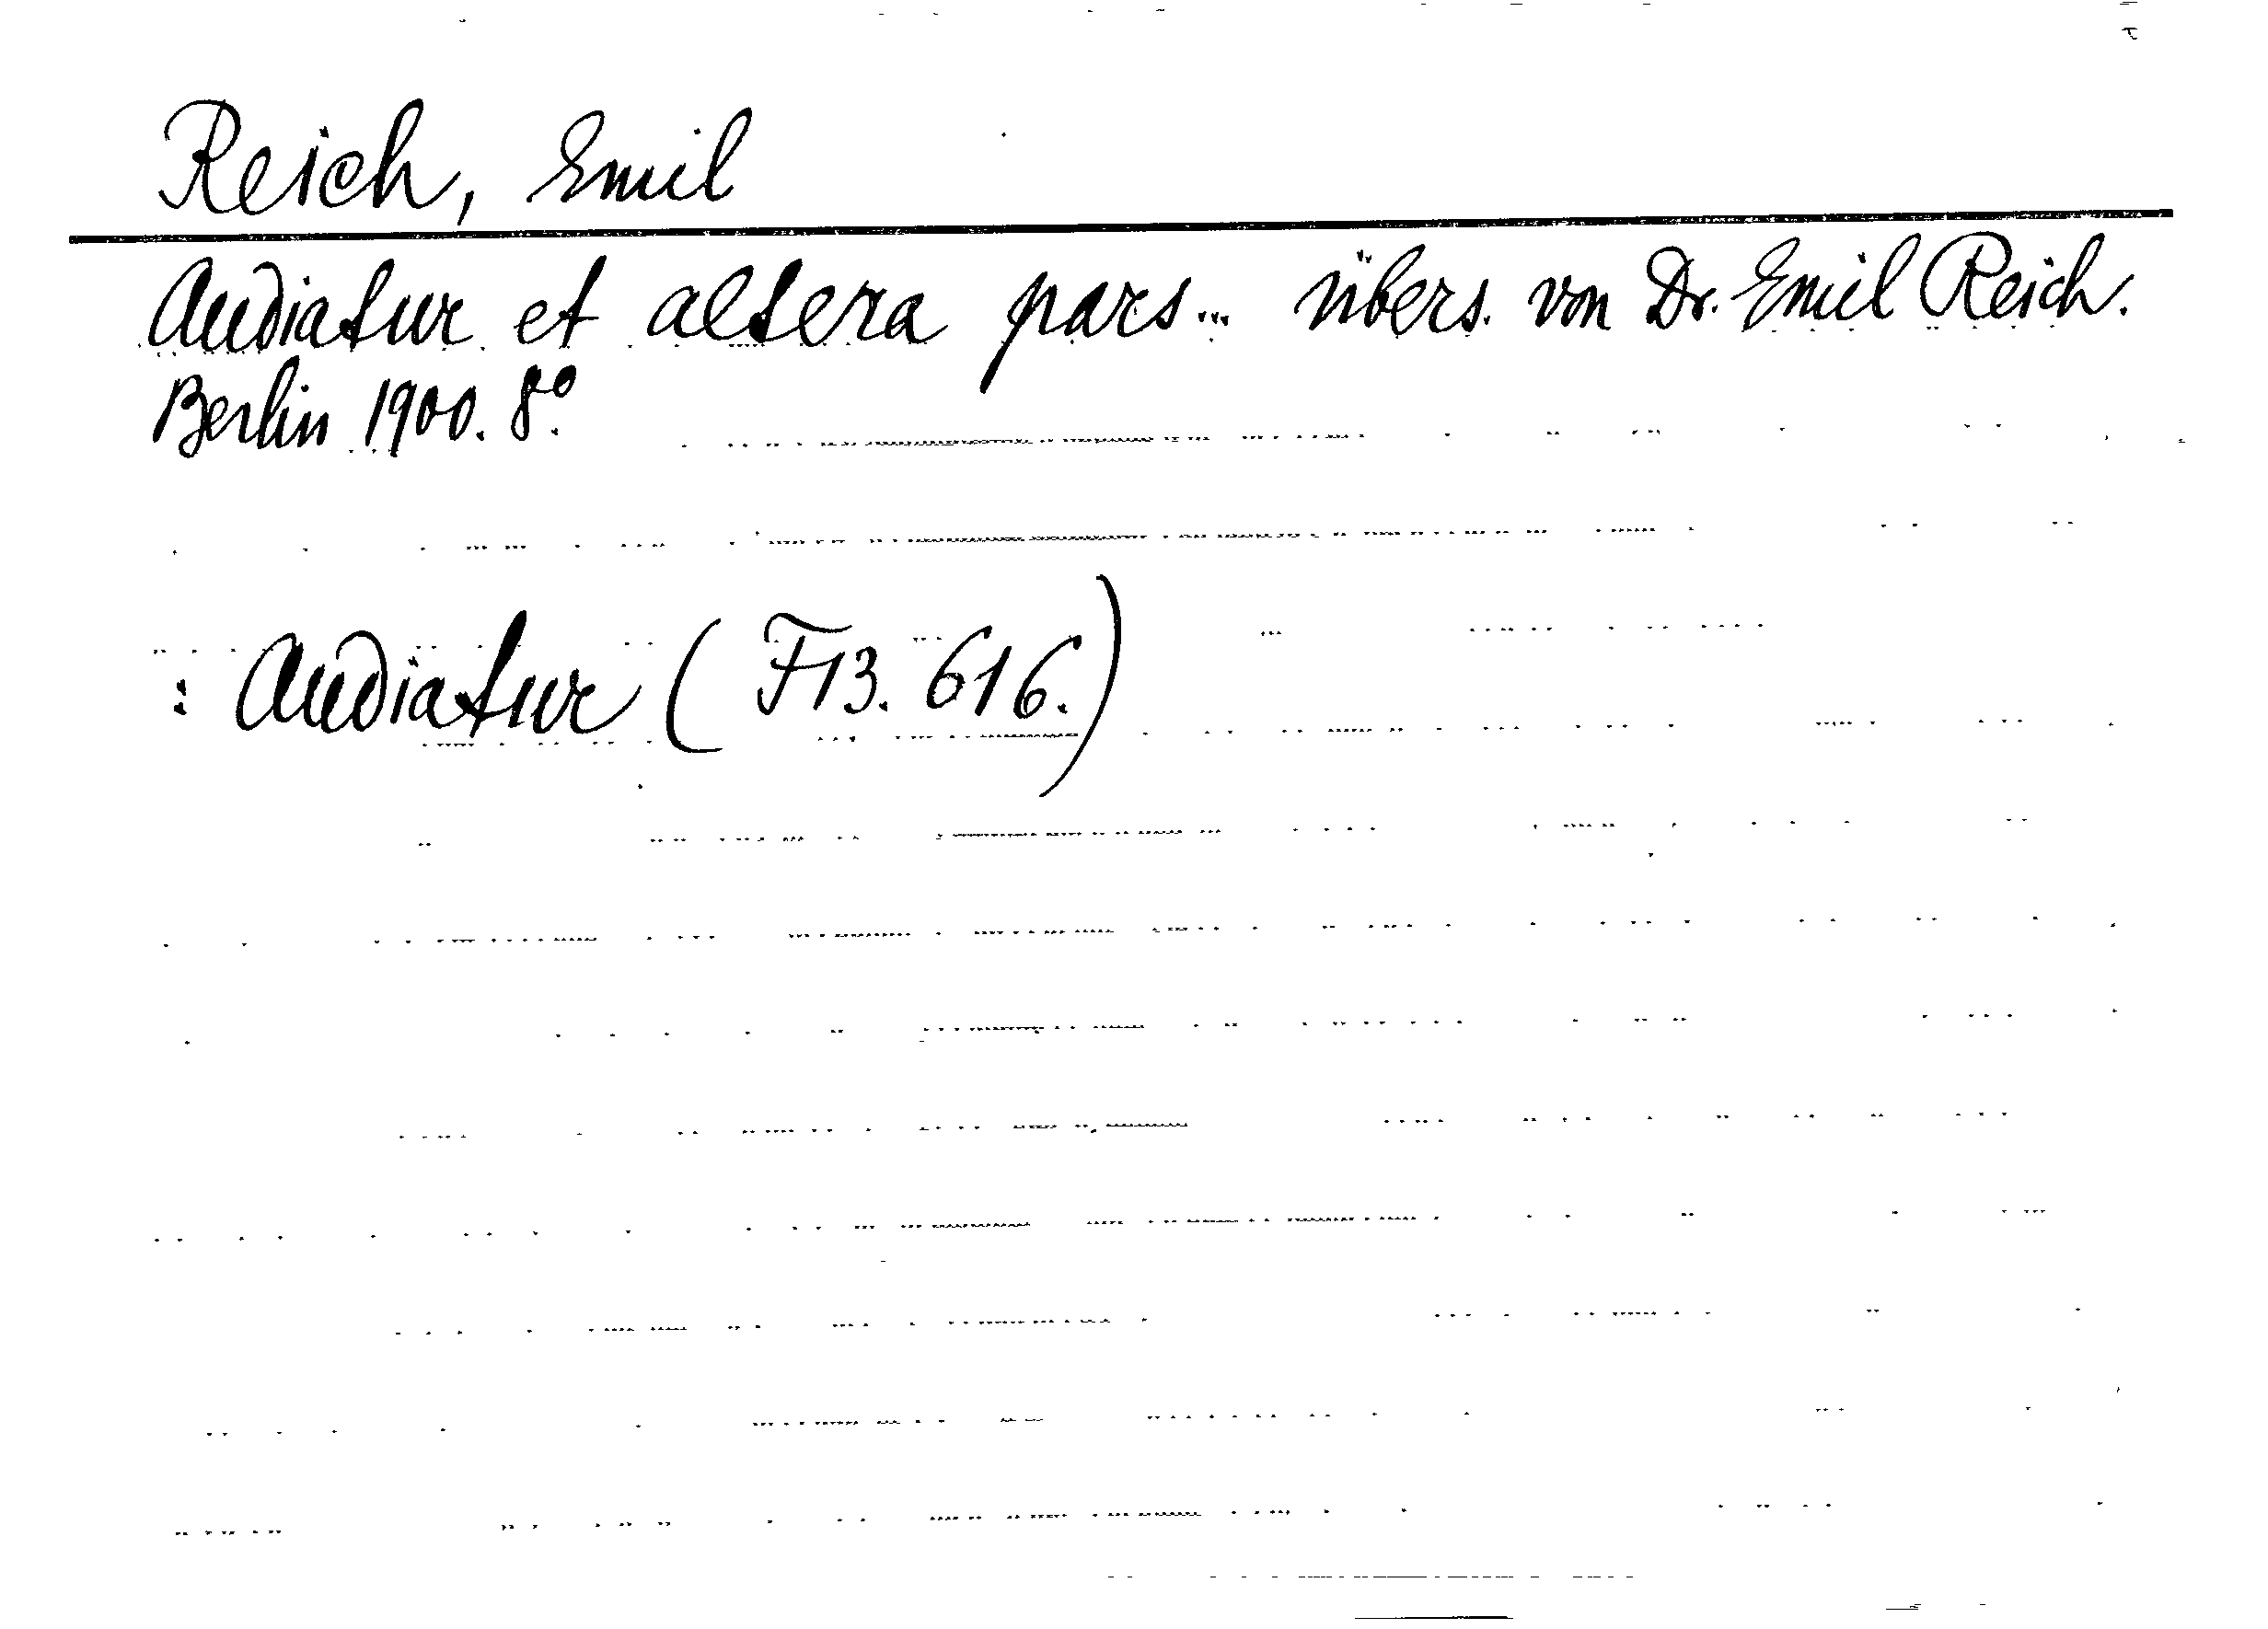 Reich, Emil
Audiatur et altera pars... übers. von Dr. Emil Reich.
Berlin 1900. 8°.
: Audiatur (F13. 616.)